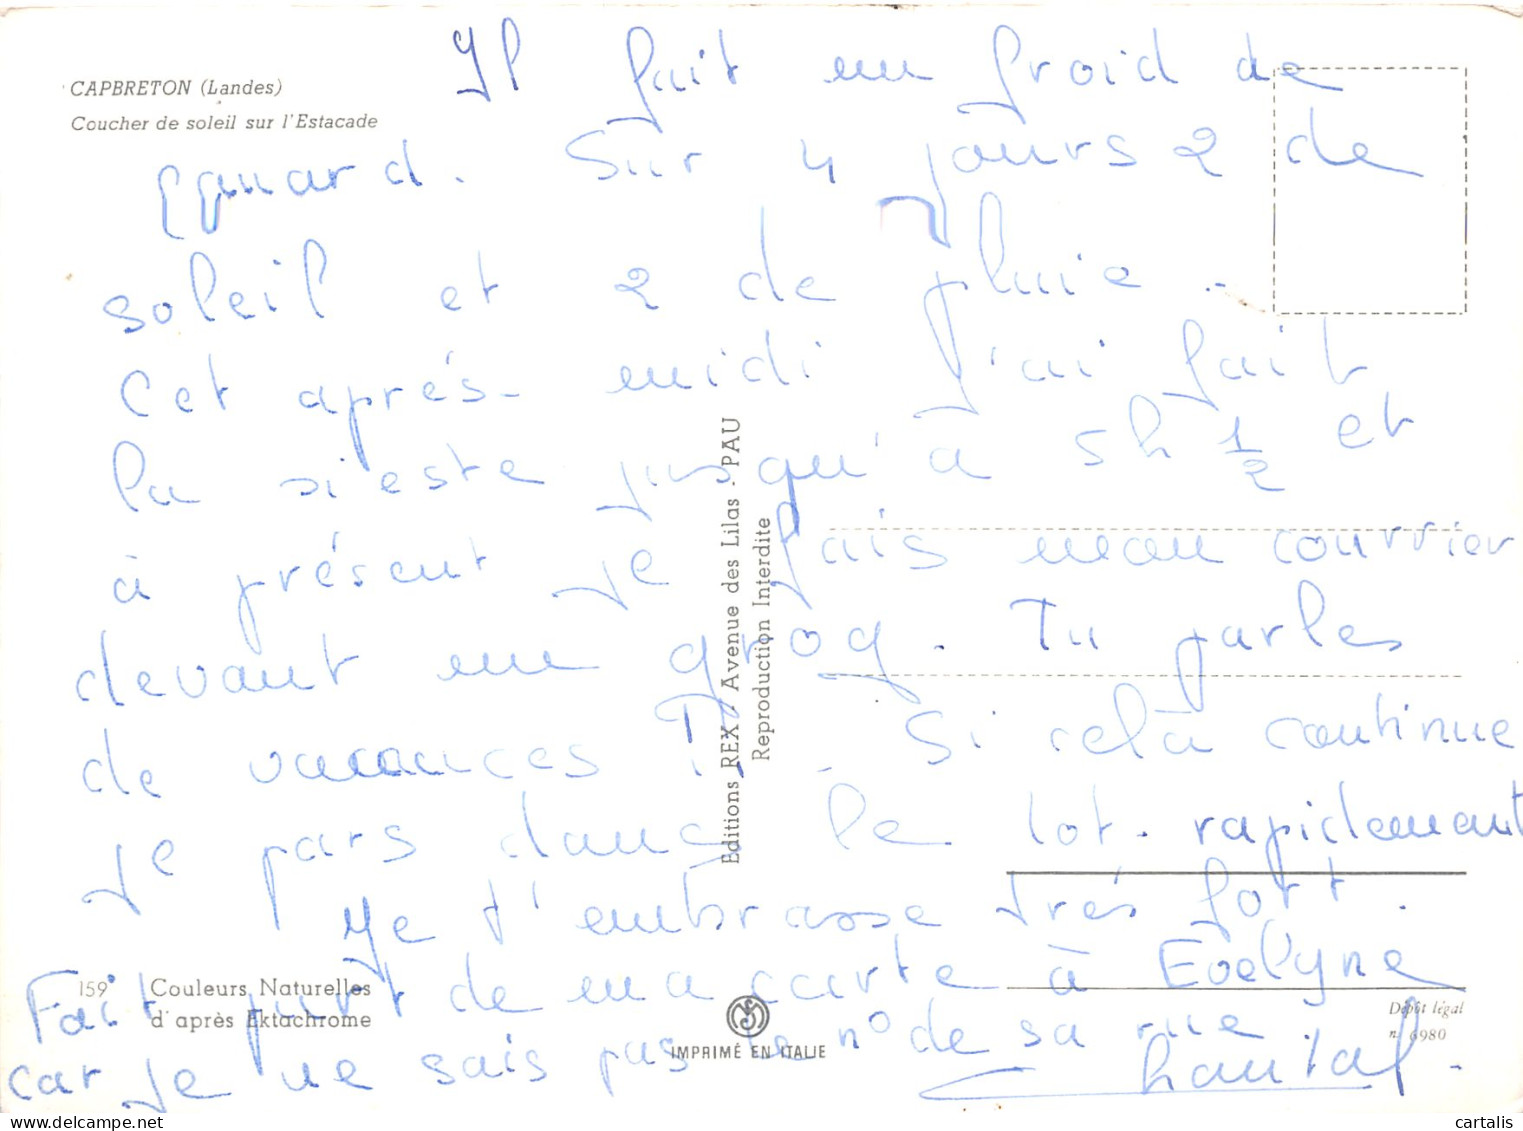 CAPBRETON (Landes)
Coucher de soleil sur l'Estacade
Il fait un froid de
canard. Sur 4 jours 2 de
soleil et 2 de pluie.
Cet après-midi j'ai fait
la sieste jusqu'à 5h 1/2 et
à présent je fais mon courrier
devant un grog. Tu parles
de vacances !. Si celà continue
je pars dans le lot. rapidement
Je t'embrasse très fort.
Fait part de ma carte à Evelyne
car je ne sais pas le n° de sa rue
Chantal.
Editions REX - Avenue des Lilas - PAU
Reproduction Interdite
159 Couleurs Naturelles
d'après Ektachrome
IMPRIMÉ EN ITALIE
Dépôt légal
n. 6980
cartalis